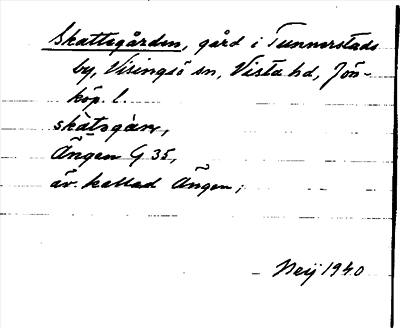 Skattegården, gård i Tunnerstads
by, Visingsö sn, Vista hd, Jön-
köp. l.
skàtsgàrn,
Ängen G 35,
äv. kallad Ängen;
Neij 1940